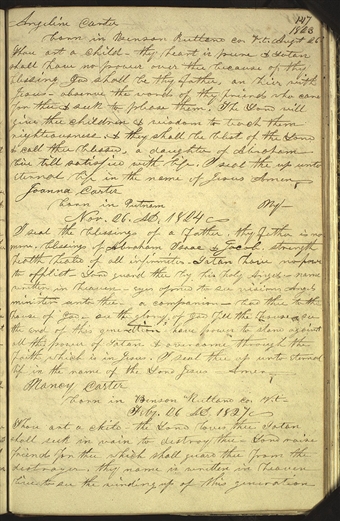 147
Angeline Carter 1823
born in Benson Rutland co. Vt. Augt 26
Thou art a child - thy heart is pure & Satan
shall have no power over thee because of this
blessing God shall be thy Father, on his right
Jesus - observe the words of thy friends who care
for thee & seek to please them. The Lord will
give thee children & wisdom to teach them
righteousness, & they shall be blest of the Lord
& call thee blessed. a daughter of Abraham
live till satisfied with life. I seal thee up unto
eternal life in the name of Jesus Amen
Joanna Carter
born in Putnam NY -
Nov. 26. AD. 1824
I seal the blessings of a Father, thy Father is no
more, blessings of Abraham Isaac & Jacob, strength
health healed of all infirmities. Satan have no power
to afflict - Lord guard thee by his holy Angels - name
written in heaven - eyes opened to see visions, Angels
minister unto thee. a companion - lead thee to the
house of God - see the glory of God fill the house & see
the end of this generation, have power to stand against
all the power of Satan & overcome through the
faith which is in Jesus. I seal thee up unto eternal
life in the name of the Lord Jesus - Amen
Nancy Carter
born in Benson Rutland co. Vt -
Feby. 26 AD 1827
Thou art a child - the Lord loves thee Satan
shall seek in vain to destroy thee - Lord raise
friends for thee which shall guard thee from the
destroyer. thy name is written in heaven
live to see the winding up of this generation